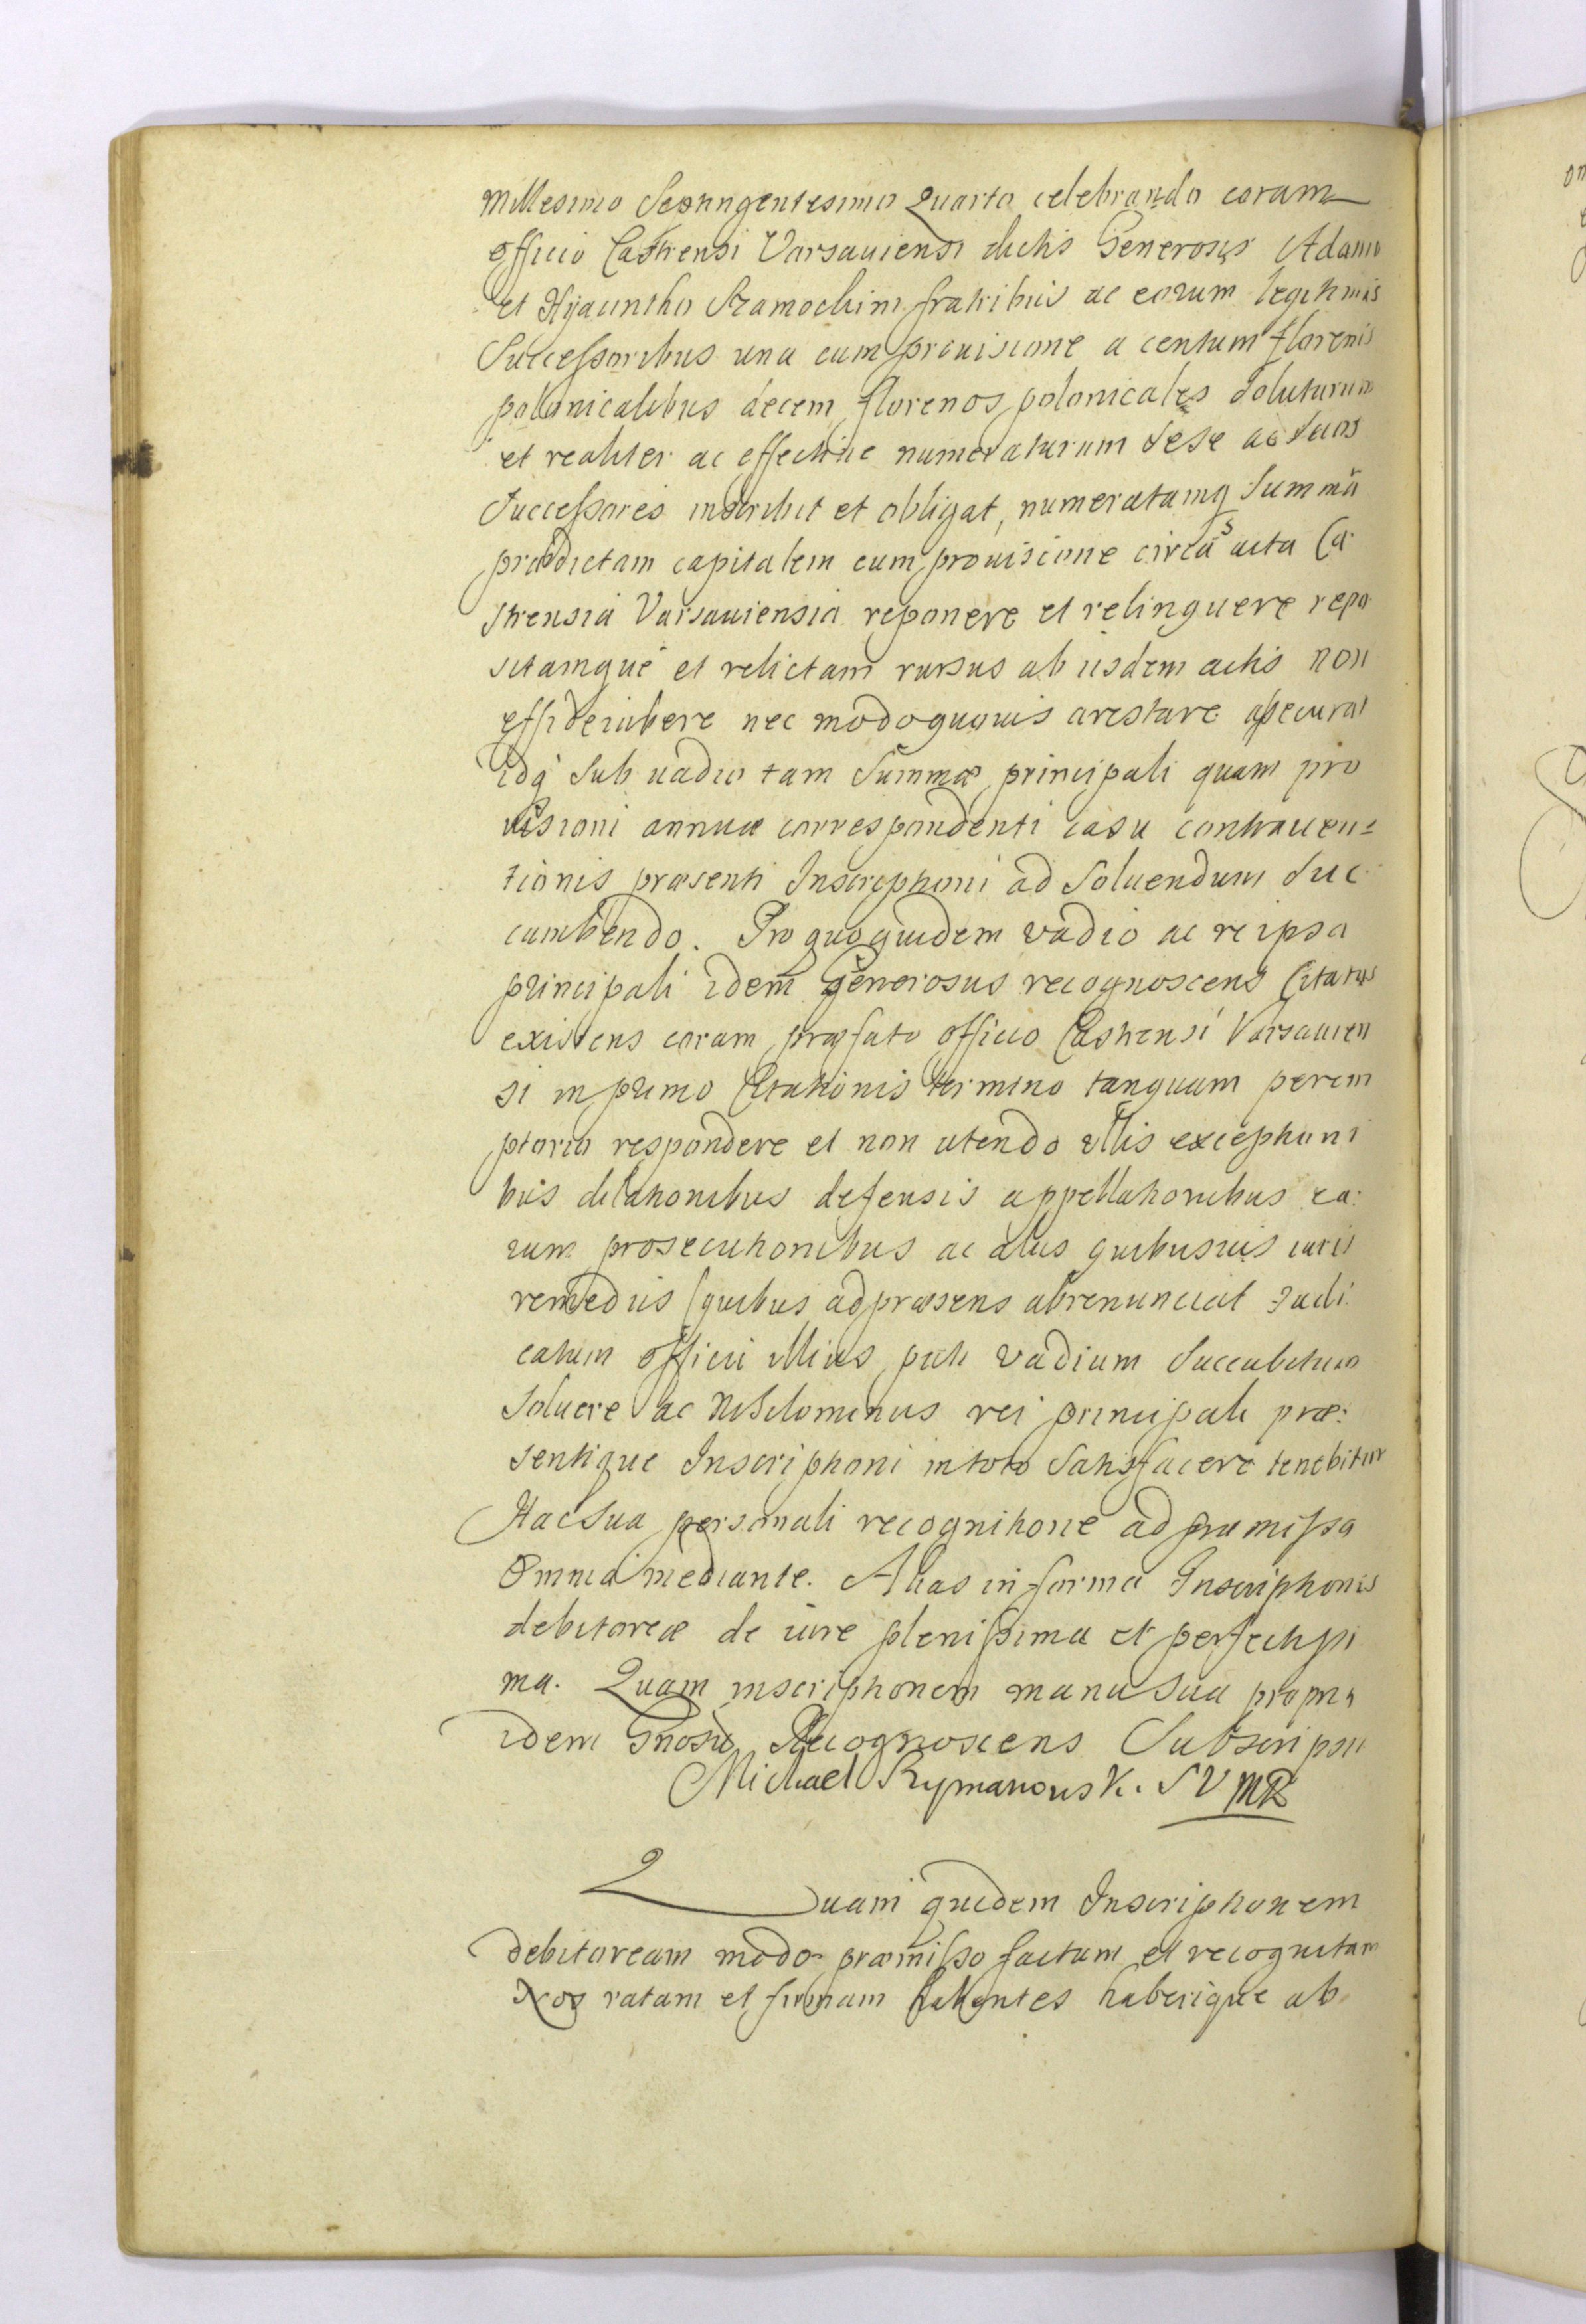 Millesimo Septingentesimo Quarto celebrando coram
officio Castrensi Varsauiensi dictis Generosis Adamo
et Hyacintho Szamockim fratribus ac eorum legitimis
Successoribus una cum prouisione a centum florenis
polonicalibus decem florenos polonicales soluturum
et realiter ac effectiue numeraturum sese ac suos
Successores inscribit et obligat, numeratamq Summã
prædictam capitalem cum prouisione circa acta Ca
strensia Varsauiensia reponere et relinquere repo
sitamque et relictam rursus ab iisdem actis non
effideiubere nec modoquouis arestare assecurat
idq sub uadio tam Summæ principali quam pro
uisioni annuæ correspondenti casu contrauen=
tionis præsenti Inscriptioni ad Soluendum suc
cumbendo. Pro quo quidem vadio ac re ipsa
principali idem Generosus recognoscens Citatus
existens coram præfato officio Castrensi Varsauien
si in primo Citationis termino tanquam perem
ptorio respondere et non utendo ullis exceptioni
bus dilationibus defensis appellationibus ea:
rum prosecutionibus ac aliis quibusuis iuris
remediis (quibus ad præsens abrenunciat Iudi
catum officii illius pati vadium Succubitum
Soluere ac Nihilominus rei principali præ:
sentique Inscriptioni in toto Satisfacere tenebitur
Hac sua personali recognitione ad præmissa
Omnia mediante. Alias in forma Inscriptionis
debitoreæ de iure plenissima et perfectissi
ma. Quam inscriptionem manu sua propria
idem Gnosus Recognoscens Subscripsit
Michael Rymanowsk. SVMR
Quam quidem Inscriptionem
debitoream modo præmisso factam et recognitam
Nos ratam et firmam habentes haberique ab